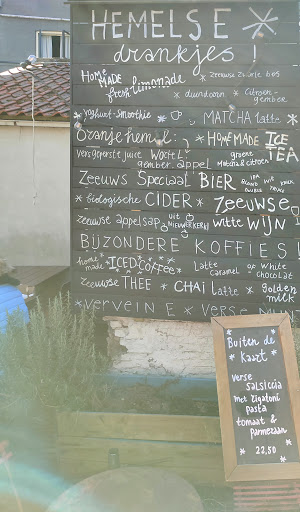 HEMELSE
drankjes!
HOME MADE fresh limonade * zeeuwse zwarte bes
* duindoorn * citroen-gember
* yoghurt-smoothie * MATCHA latte *
Oranje hemel: * HOMEMADE ICE TEA
versgeperste juice WORTEL gember appel groene
Zeeuws Speciaal BIER IPA BLOND WIT
* biologische CIDER * Zeeuwse
zeeuwse appelsap uit NIEUWERKERK! witte WIJN
BIJZONDERE KOFFIES!
home made ICED COFFEE * Latte caramel * of White chocolat
zeeuwse THEE * CHAI latte * golden milk
* VERVEINE * VERSE MUNT
* Buiten de kaart *
verse
salsiccia
met rigatoni
pasta
tomaat &
parmezaan
* 22,50 *